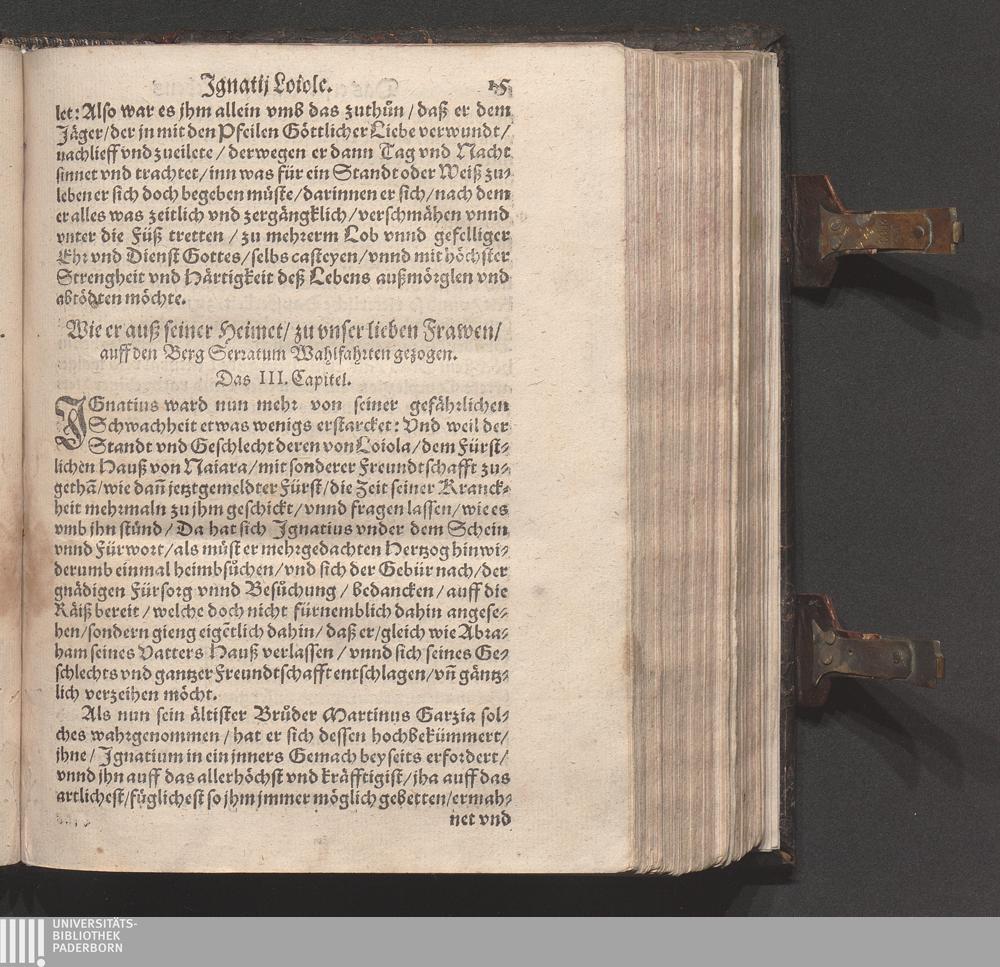 Ignatij Loiole. 15
let: Also war es jhm allein vmb das zuthůn / daß er dem
Jäger / der jn mit den Pfeilen Göttlicher Liebe verwundt /
nachlieff vnd zueilete / derwegen er dann Tag vnd Nacht
sinnet vnd trachtet / inn was für ein Standt oder Weiß zu⸗
leben er sich doch begeben müste / darinnen er sich / nach dem
er alles was zeitlich vnd zergängklich / verschmähen vnnd
vnter die Füß tretten / zu mehrerm Lob vnnd gefelliger
Ehr vnd Dienst Gottes / selbs casteyen / vnnd mit höchster
Strengheit vnd Härtigkeit deß Lebens außmörglen vnd
abtödten möchte.
Wie er auß seiner Heimet / zu vnser lieben Frawen /
auff den Berg Serratum Wahlfahrten gezogen.
Das III. Capitel.
IGnatius ward nun mehr von seiner gefährlichen
Schwachheit etwas wenigs erstarcket: Vnd weil der
Standt vnd Geschlecht deren von Loiola / dem Fürst⸗
lichen Hauß von Naiara / mit sonderer Freundtschafft zu⸗
gethã / wie dañ jetztgemeldter Fürst / die Zeit seiner Kranck⸗
heit mehrmaln zu jhm geschickt / vnnd fragen lassen / wie es
vmb jhn stünd / Da hat sich Ignatius vnder dem Schein
vnnd Fürwort / als müst er mehrgedachten Hertzog hinwi⸗
derumb einmal heimbsůchen / vnd sich der Gebür nach / der
gnädigen Fürsorg vnnd Besůchung / bedancken / auff die
Räiß bereit / welche doch nicht fürnemblich dahin angese⸗
hen / sondern gieng eigẽtlich dahin / daß er / gleich wie Abra⸗
ham seines Vatters Hauß verlassen / vnnd sich seines Ge⸗
schlechts vnd gantzer Freundtschafft entschlagen / vñ gäntz⸗
lich verzeihen möcht.
Als nun sein ältister Brůder Martinus Garzia sol⸗
ches wahrgenommen / hat er sich dessen hochbekümmert /
jhne / Ignatium in ein jnners Gemach beyseits erfordert /
vnnd jhn auff das allerhöchst vnd kräfftigist / jha auff das
artlichest / füglichest so jhm jmmer möglich gebetten / ermah⸗
net vnd
UNIVERSITÄTS-
BIBLIOTHEK
PADERBORN